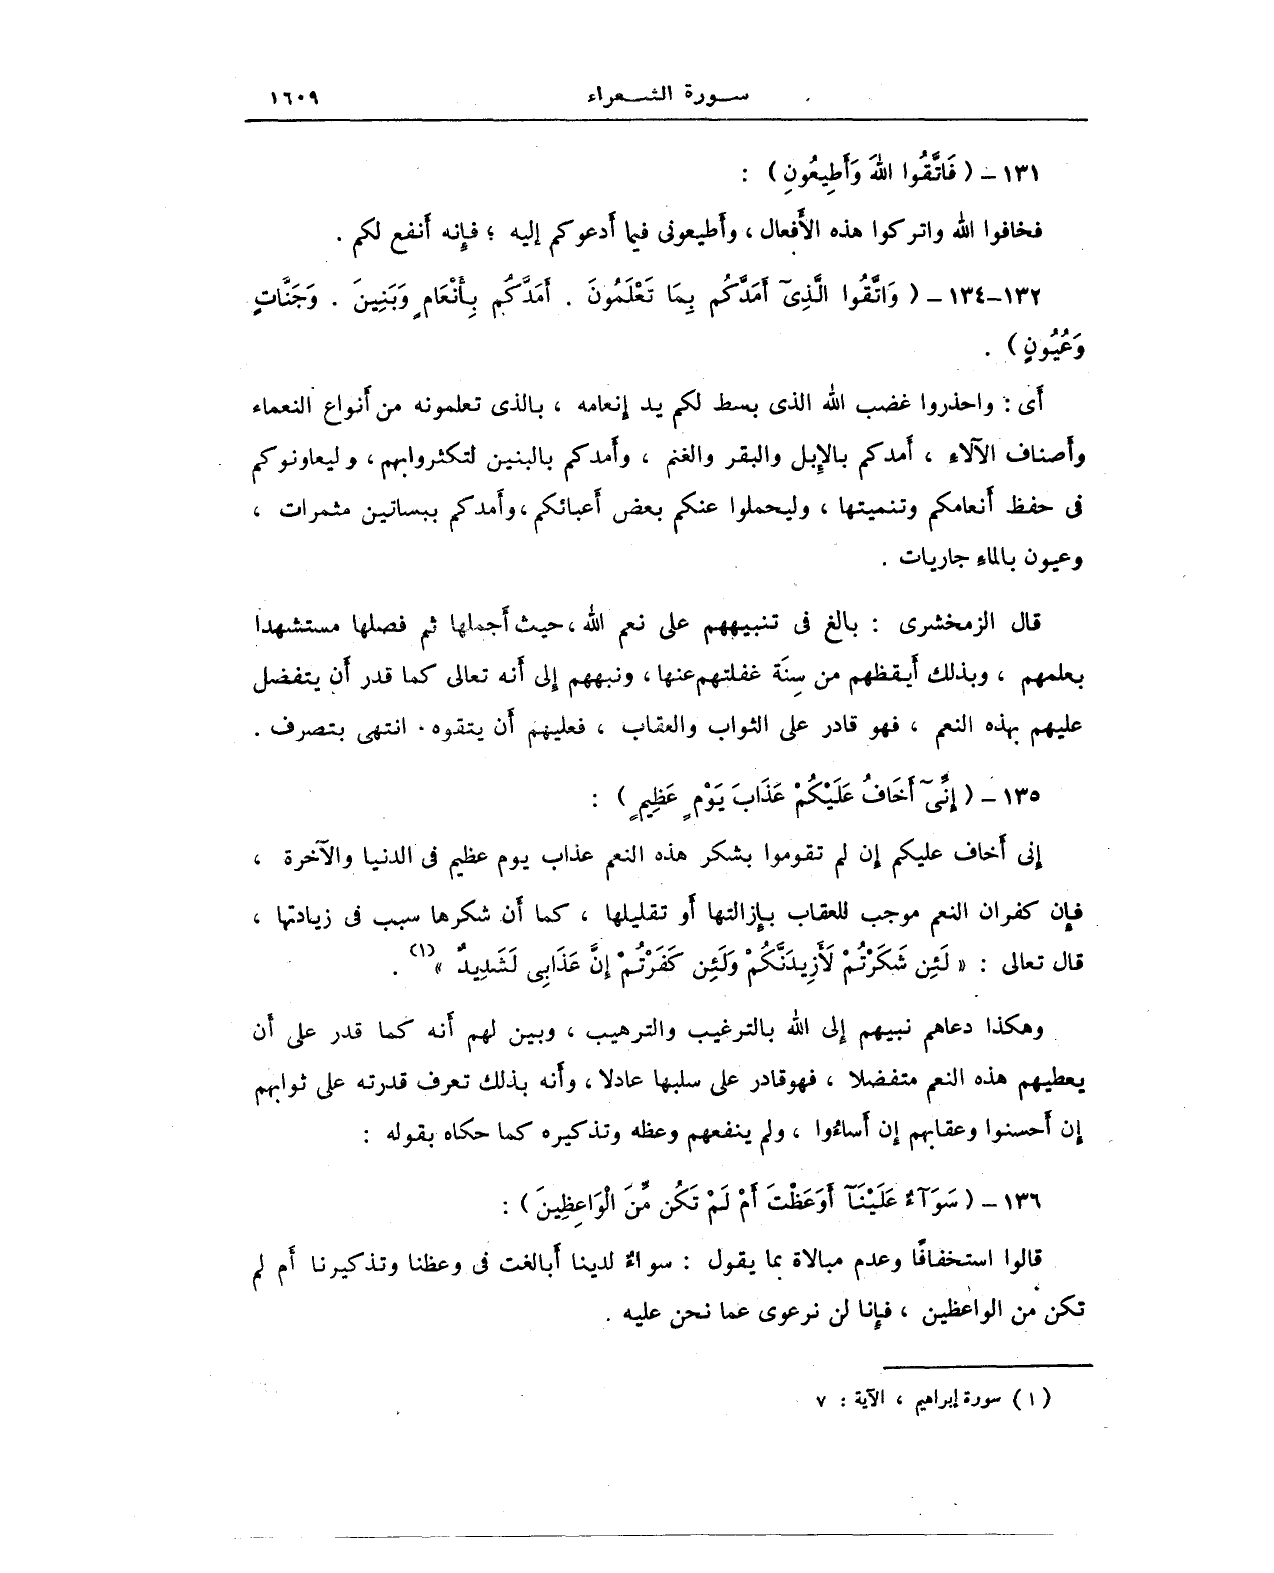 سورة الشعراء ١٦٠٩
١٣١ – ( فَاتَّقُوا اللهَ وَأَطِيعُونِ ) :
فخافوا الله واتركوا هذه الأفعال ، وأطيعونى فيما أدعوكم إليه ؛ فإنه أنفع لكم .
١٣٢–١٣٤ – ( وَاتَّقُوا الَّذِىٓ أَمَدَّكُم بِمَا تَعْلَمُونَ . أَمَدَّكُم بِأَنْعَامٍ وَبَنِينَ . وَجَنَّاتٍ
وَعُيُونٍ ) .
أى : واحذروا غضب الله الذى بسط لكم يد إنعامه ، بالذى تعلمونه من أنواع النعماء
وأصناف الآلاء ، أمدكم بالإبل والبقر والغنم ، وأمدكم بالبنين لتكثروا بهم ، وليعاونوكم
فى حفظ أنعامكم وتنميتها ، وليحملوا عنكم بعض أعبائكم ، وأمدكم ببساتين مثمرات ،
وعيون بالماء جاريات .
قال الزمخشرى : بالغ فى تنبيههم على نعم الله ، حيث أجملها ثم فصلها مستشهدا
بعلمهم ، وبذلك أيقظهم من سِنَة غفلتهم عنها ، ونبههم إلى أنه تعالى كما قدر أن يتفضل
عليهم بهذه النعم ، فهو قادر على الثواب والعقاب ، فعليهم أن يتقوه . انتهى بتصرف .
١٣٥ – ( إِنِّىٓ أَخَافُ عَلَيْكُمْ عَذَابَ يَوْمٍ عَظِيمٍ ) :
إنى أخاف عليكم إن لم تقوموا بشكر هذه النعم عذاب يوم عظيم فى الدنيا والآخرة ،
فإن كفران النعم موجب للعقاب بإزالتها أو تقليلها ، كما أن شكرها سبب فى زيادتها ،
قال تعالى : « لَئِن شَكَرْتُمْ لَأَزِيدَنَّكُمْ وَلَئِن كَفَرْتُمْ إِنَّ عَذَابِى لَشَدِيدٌ »(١) .
وهكذا دعاهم نبيهم إلى الله بالترغيب والترهيب ، وبين لهم أنه كما قدر على أن
يعطيهم هذه النعم متفضلا ، فهو قادر على سلبها عادلا ، وأنه بذلك تعرف قدرته على ثوابهم
إن أحسنوا وعقابهم إن أساءُوا ، ولم ينفعهم وعظه وتذكيره كما حكاه بقوله :
١٣٦ – ( سَوَآءٌ عَلَيْنَآ أَوَعَظْتَ أَمْ لَمْ تَكُن مِّنَ الْوَاعِظِينَ ) :
قالوا استخفافًا وعدم مبالاة بما يقول : سواءٌ لدينا أبالغت فى وعظنا وتذكيرنا أم لم
تكن من الواعظين ، فإنا لن نرعوى عما نحن عليه .
(١) سورة إبراهيم ، الآية : ٧